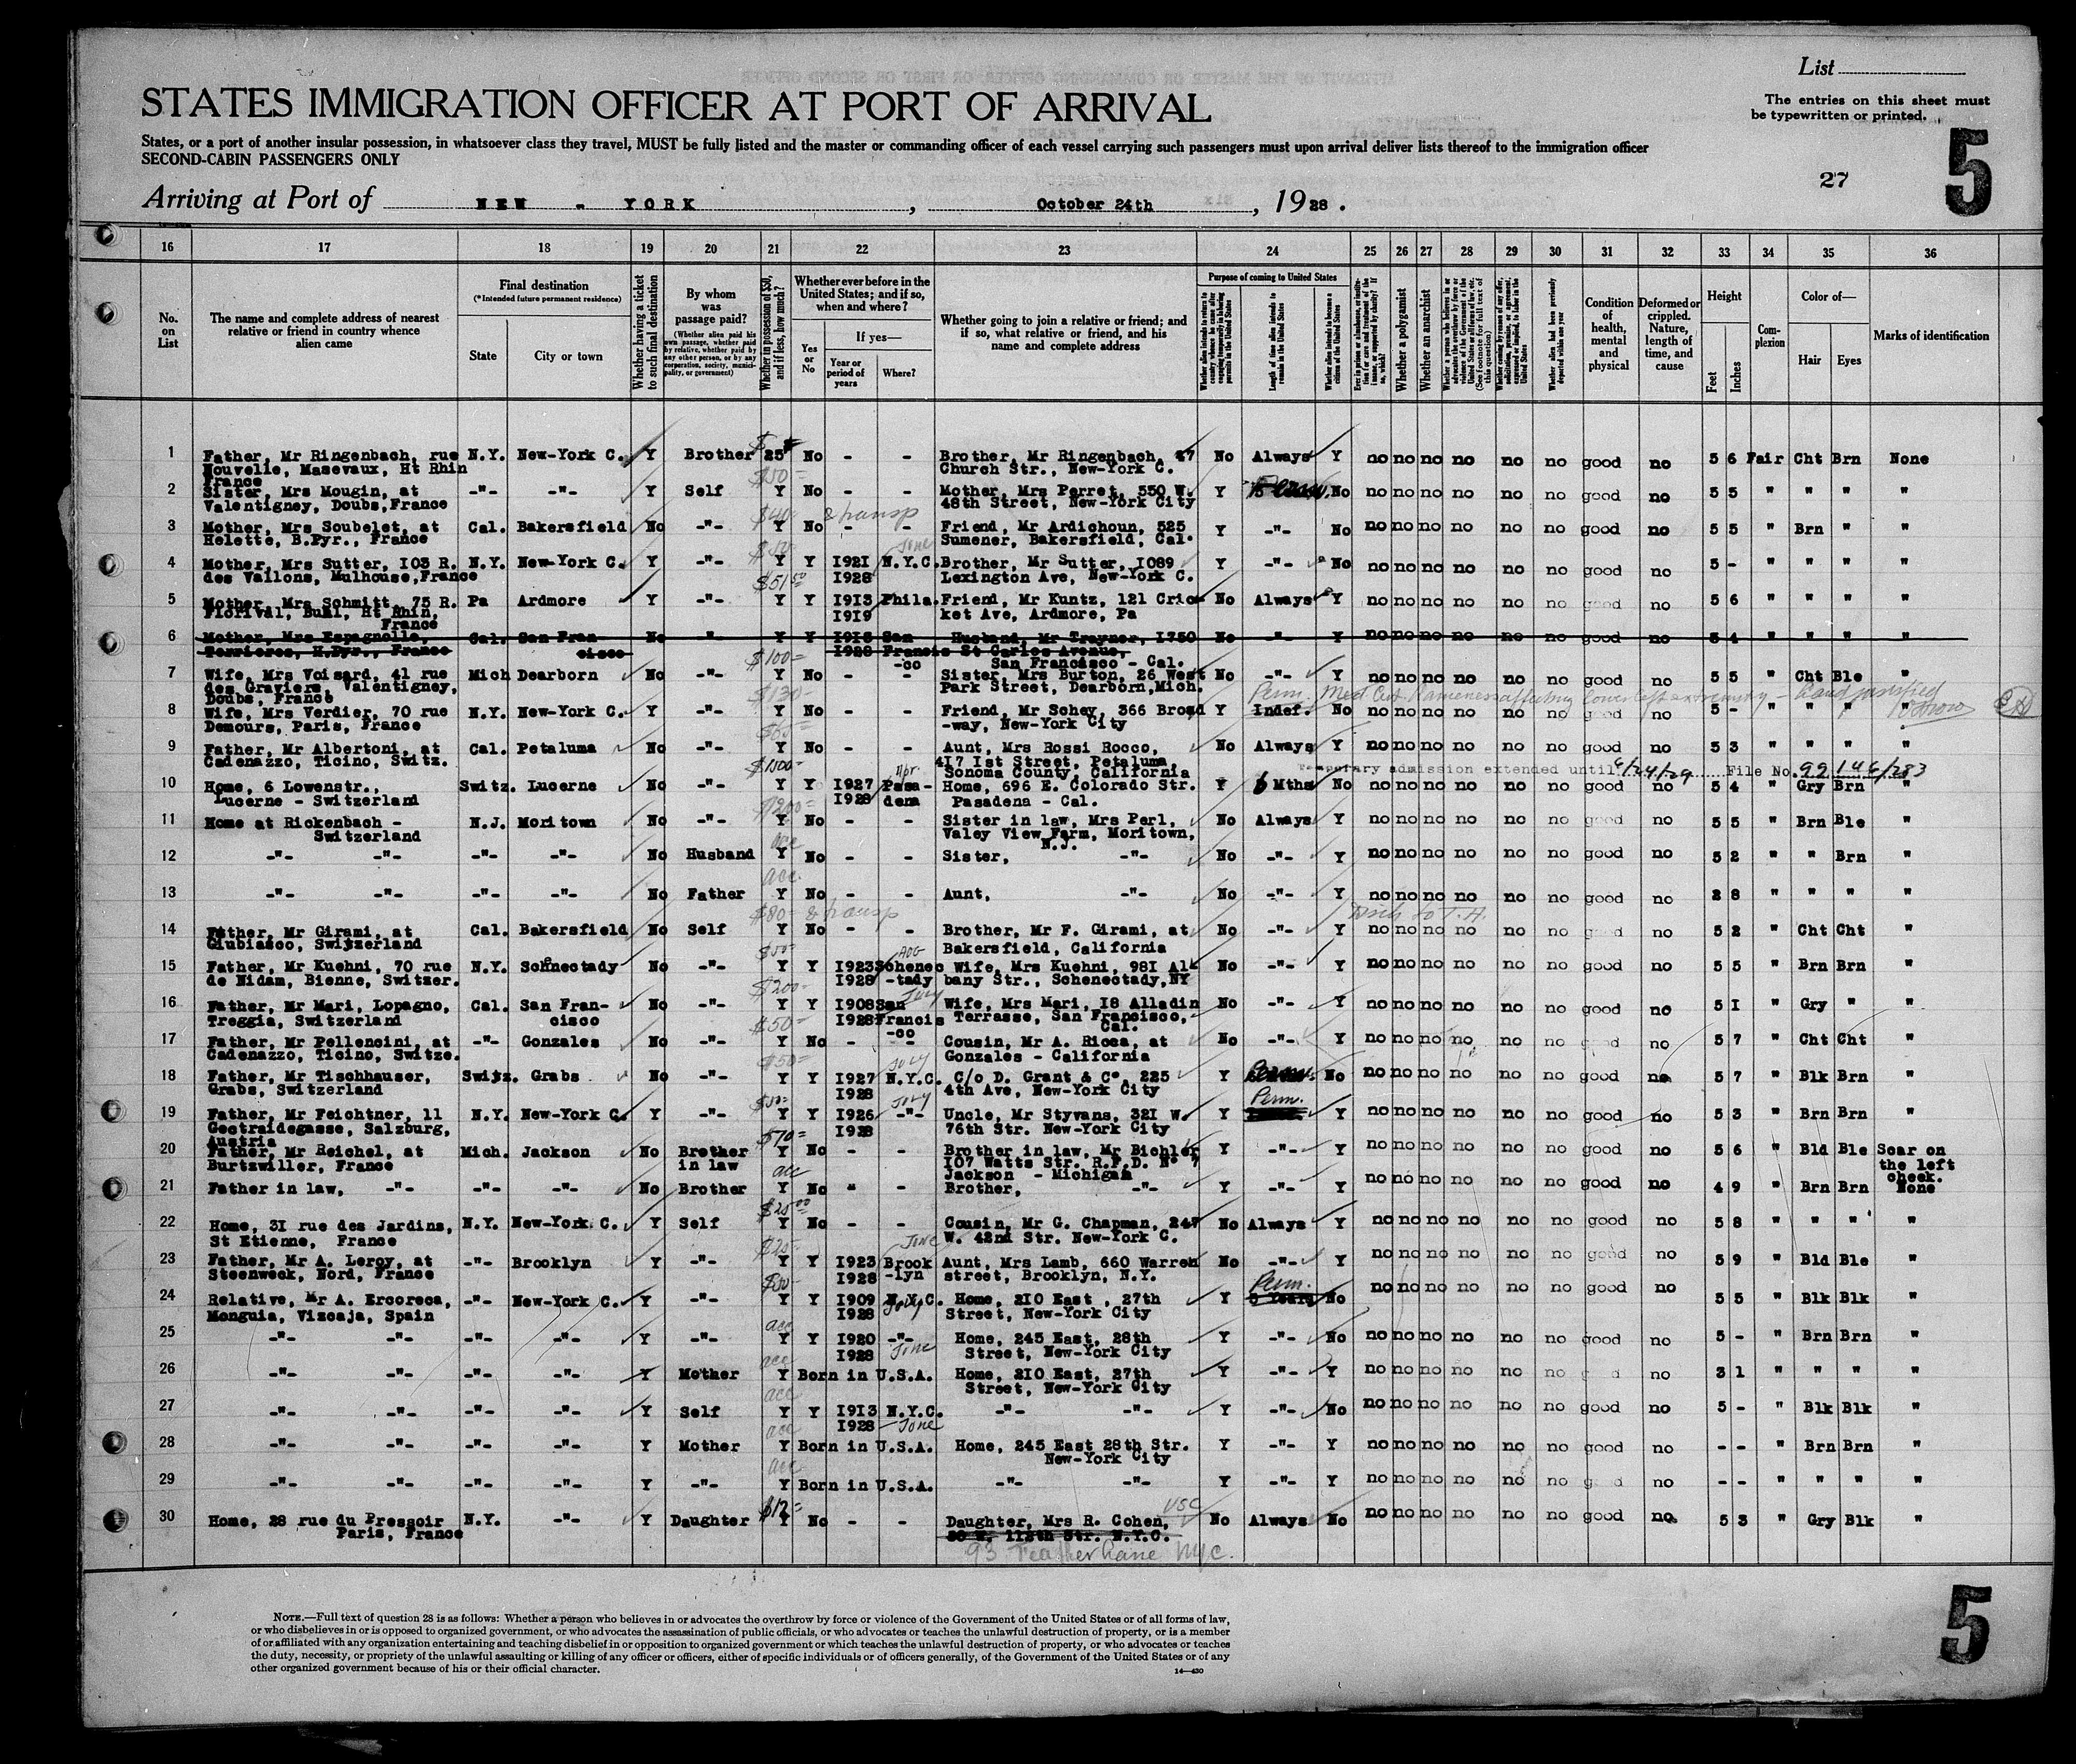 List
STATES IMMIGRATION OFFICER AT PORT OF ARRIVAL
The entries on this sheet must
be typewritten or printed.
States, or a port of another insular possession, in whatsoever class they travel, MUST be fully listed and the master or commanding officer of each vessel carrying such passengers must upon arrival deliver lists thereof to the immigration officer
SECOND-CABIN PASSENGERS ONLY
5
27
Arriving at Port of NEW - YORK, October 24th, 1928.
16 17 18 19 20 21 22 23 24 25 26 27 28 29 30 31 32 33 34 35 36
No. on List
The name and complete address of nearest relative or friend in country whence alien came
Final destination
(*Intended future permanent residence)
State
City or town
Whether having a ticket to such final destination
By whom was passage paid?
(Whether alien paid his own passage, whether paid by relative, whether paid by any other person, or by any corporation, society, municipality, or government)
Whether in possession of $50, and if less, how much?
Whether ever before in the United States; and if so, when and where?
Yes or No
If yes—
Year or period of years
Where?
Whether going to join a relative or friend; and if so, what relative or friend, and his name and complete address
Purpose of coming to United States
Length of time alien intends to remain in the United States
Whether alien intends to become a citizen of the United States
Whether a polygamist
Whether an anarchist
Whether alien had been previously deported within one year
Condition of health, mental and physical
Deformed or crippled. Nature, length of time, and cause
Height
Feet
Inches
Complexion
Color of—
Hair
Eyes
Marks of identification
1 Father, Mr Ringenbach, rue N.Y. New-York C. Y Brother 25 No - - Brother, Mr Ringenbach, 47 No Always Y no no no no no no good no 5 6 Fair Cht Brn None
Nouvelle, Masevaux, Ht Rhin Church Str., New-York C.
France $50
2 Sister, Mrs Mougin, at -"- -"- Y Self Y No - - Mother, Mrs Perret, 550 W. Y No no no no no no no good no 5 5 " " " "
Valentigney, Doubs, France 48th Street, New-York City
$40 & transp
3 Mother, Mrs Soubelet, at Cal. Bakersfield No -"- Y No - - Friend, Mr Ardichoun, 525 Y -"- No no no no no no no good no 5 5 " Brn " "
Helette, B.Pyr., France Sumener, Bakersfield, Cal.
$50 June
4 Mother, Mrs Sutter, 103 R. N.Y. New-York C. Y -"- Y Y 1921 N.Y.C. Brother, Mr Sutter, 1089 Y -"- No no no no no no no good no 5 - " " " "
des Vallons, Mulhouse, France 1928 Lexington Ave, New-York C.
$51.50
5 Mother, Mrs Schmitt, 75 R. Pa Ardmore Y -"- Y Y 1913 Phila. Friend, Mr Kuntz, 121 Cric- No Always Y no no no no no no good no 5 6 " " " "
Florival, Buhl, Ht Rhin, 1919 ket Ave, Ardmore, Pa
France
6 Mother, Mrs Espagnolle, Cal. San Fran- No -"- Y Y 1918 San Husband, Mr Traynor, 1750 No -"- Y no no no no no no good no 5 4 " " " "
Terrieres, H.Pyr., France cisco 1928 Francis St Carlos Avenue,
$100 -co San Francisco - Cal.
7 Wife, Mrs Voisard, 41 rue Mich Dearborn No -"- Y No - - Sister, Mrs Burton, 26 West No -"- Y no no no no no no good no 5 5 " Cht Ble "
des Graviers, Valentigney, Park Street, Dearborn, Mich.
Doubs, France $130 Perm. Med Cert Lameness affecting lower left extremity -
8 Wife, Mrs Verdier, 70 rue N.Y. New-York C. Y -"- Y No - - Friend, Mr Schey, 366 Broad Y Indef. No no no no no no no good no 5 - " " " "
Demours, Paris, France -way, New-York City
$65
9 Father, Mr Albertoni, at Cal. Petaluma No -"- Y No - - Aunt, Mrs Rossi Rocco, No Always Y no no no no no no good no 5 3 " " " "
Cadenazzo, Ticino, Switz. 417 1st Street, Petaluma,
$1500 Apr. Sonoma County, California Temporary admission extended until 6/24/29 File No. 99146/283
10 Home, 6 Lowenstr., Switz. Lucerne No -"- Y Y 1927 Pasa- Home, 696 E. Colorado Str. Y 6 Mths No no no no no no no good no 5 4 " Gry Brn "
Lucerne - Switzerland 1928 dena Pasadena - Cal.
$1200
11 Home at Rickenbach - N.J. Moritown No -"- Y No - - Sister in law, Mrs Perl, No Always Y no no no no no no good no 5 5 " Brn Ble "
Switzerland Valey View Farm, Moritown,
acc N.J.
12 -"- -"- -"- -"- No Husband Y No - - Sister, -"- No -"- Y no no no no no no good no 5 2 " " Brn "
acc.
13 -"- -"- -"- -"- No Father Y No - - Aunt, -"- No -"- Y no no no no no no good no 2 8 " " " "
$80 & transp
14 Father, Mr Girami, at Cal. Bakersfield No Self Y No - - Brother, Mr F. Girami, at No -"- Y no no no no no no good no 5 2 " Cht Cht "
Giubiasco, Switzerland Bakersfield, California
$50 Aug
15 Father, Mr Kuehni, 70 rue N.Y. Schnectady No -"- Y Y 1923 Schenec Wife, Mrs Kuehni, 981 Al- No -"- Y no no no no no no good no 5 5 " Brn Brn "
de Nidam, Bienne, Switzer. 1928 -tady bany Str., Schenectady, NY
$200 July
16 Father, Mr Mari, Lopagno, Cal. San Fran- No -"- Y Y 1908 San Wife, Mrs Mari, 18 Alladin No -"- Y no no no no no no good no 5 1 " Gry " "
Treggia, Switzerland cisco 1928 Francis Terrasse, San Francisco,
$50 -co Cal.
17 Father, Mr Pellencini, at -"- Gonzales No -"- Y No - - Cousin, Mr A. Ricca, at No -"- Y no no no no no no good no 5 7 " Cht Cht "
Cadenazzo, Ticino, Switze. Gonzales - California
$50 July
18 Father, Mr Tischhauser, Switz. Grabs No -"- Y Y 1927 N.Y.C. C/o D. Grant & C°, 225 Y No no no no no no no good no 5 7 " Blk Brn "
Grabs, Switzerland 1928 4th Ave, New-York City
$50 July Perm.
19 Father, Mr Feichtner, 11 N.Y. New-York C. Y -"- Y Y 1926 -"- Uncle, Mr Styvans, 321 W. Y Y no no no no no no good no 5 3 " Brn Brn "
Geetraidegasse, Salzburg, 1928 76th Str. New-York City
Austria $70
20 Father, Mr Reichel, at Mich. Jackson No Brother Y No - - Brother in law, Mr Bichler Y -"- Y no no no no no no good no 5 6 " Bld Ble Scar on
Burtzwiller, France in law 107 Watts Str. R.F.D. N° 7 the left
acc Jackson - Michigan cheek.
21 Father in law, -"- -"- -"- No Brother Y No - - Brother, -"- Y -"- Y no no no no no no good no 4 9 " Brn Brn None
$25.00
22 Home, 31 rue des Jardins, N.Y. New-York C. Y Self Y No - - Cousin, Mr G. Chapman, 247 No Always Y no no no no no no good no 5 8 " " " "
St Etienne, France W. 42nd Str. New-York C.
$25 June
23 Father, Mr A. Leroy, at -"- Brooklyn Y -"- Y Y 1923 Brook Aunt, Mrs Lamb, 660 Warren No -"- Y no no no no no no good no 5 9 " Bld Ble "
Steenweck, Nord, France 1928 -lyn street, Brooklyn, N.Y.
Perm.
24 Relative, Mr A. Ercoreca, -"- New-York C. Y -"- Y Y 1909 N.Y.C. Home, 210 East, 27th Y 5 Years No no no no no no no good no 5 5 " Blk Blk "
Monguia, Vizcaja, Spain 1928 July Street, New-York City
acc
25 -"- -"- -"- -"- Y -"- Y Y 1920 -"- Home, 245 East, 28th Y -"- No no no no no no no good no 5 - " Brn Brn "
1928 June Street, New-York City
acc
26 -"- -"- -"- -"- Y Mother Y Born in U.S.A. Home, 210 East, 27th Y -"- Y no no no no no no no 3 1 " " " "
Street, New-York City
acc
27 -"- -"- -"- -"- Y Self Y Y 1913 N.Y.C. -"- -"- Y -"- No no no no no no no good no 5 - " Blk Blk "
1928 June
acc
28 -"- -"- -"- -"- Y Mother Y Born in U.S.A. Home, 245 East 28th Str. Y -"- Y no no no no no no good no - - " Brn Brn "
New-York City
acc
29 -"- -"- -"- -"- Y -"- Y Born in U.S.A. -"- -"- Y -"- Y no no no no no no no - - " " " "
$12 USC
30 Home, 28 rue du Pressoir N.Y. -"- Y Daughter Y No - - Daughter, Mrs R. Cohen, No Always No no no no no no no good no 5 3 " Gry Blk "
Paris, France W. 112th Str. N.Y.C.
93 Feather Lane NYC.
NOTE.—Full text of question 28 is as follows: Whether a person who believes in or advocates the overthrow by force or violence of the Government of the United States or of all forms of law,
or who disbelieves in or is opposed to organized government, or who advocates the assassination of public officials, or who advocates or teaches the unlawful destruction of property, or is a member
of or affiliated with any organization entertaining and teaching disbelief in or opposition to organized government or which teaches the unlawful destruction of property, or who advocates or teaches
the duty, necessity, or propriety of the unlawful assaulting or killing of any officer or officers, either of specific individuals or of officers generally, of the Government of the United States or of any
other organized government because of his or their official character.
14—430
5